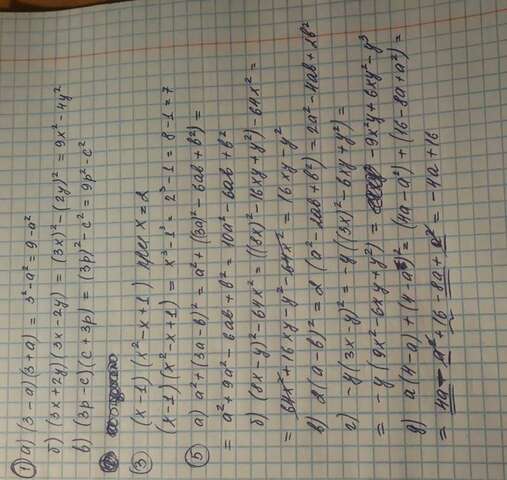 ① а) (3-a)(3+a) = 3²-a² = 9-a²
б) (3x+2y)(3x-2y) = (3x)²-(2y)² = 9x²-4y²
в) (3p-c)(c+3p) = (3p)²-c² = 9p²-c²
③ (x-1)(x²-x+1) при x=2
(x-1)(x²-x+1) = x³-1³ = 2³-1 = 8-1 = 7
⑤ а) a²+(3a-b)² = a²+((3a)²-6ab+b²) =
= a²+9a²-6ab+b² = 10a²-6ab+b²
б) (8x-y)²-64x² = ((8x)²-16xy+y²)-64x² =
= 64x²+16xy-y²-64x² = 16xy-y²
в) 2(a-b)² = 2(a²-2ab+b²) = 2a²-4ab+2b²
г) -y(3x-y)² = -y((3x)²-6xy+y²) =
= -y(9x²-6xy+y²) = -9x²y+6xy²-y³
д) a(4-a)+(4-a)² = (4a-a²)+(16-8a+a²) =
= 4a-a²+16-8a+a² = -4a+16